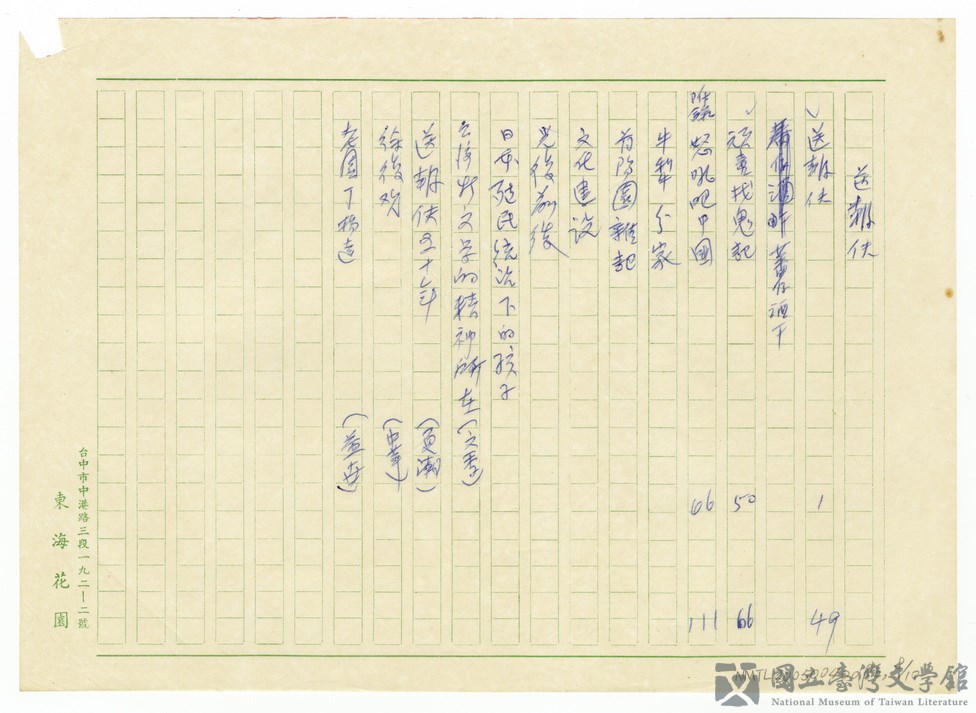 送報伕
✓送報伕 1 49
蕃仔酒下
✓頑童找鬼記 50 66
怒吼吧中國 66 111
牛犁分家
首陽園雜記
文化建設
光復前後
日本殖民統治下的孩子
台湾新文学的精神所在(文季)
送報伕五十年
徐復观(中華)
老園丁楊逵(益世)
台中市中港路三段一九二-二號
東海花園
國立臺灣文學館
National Museum of Taiwan Literature